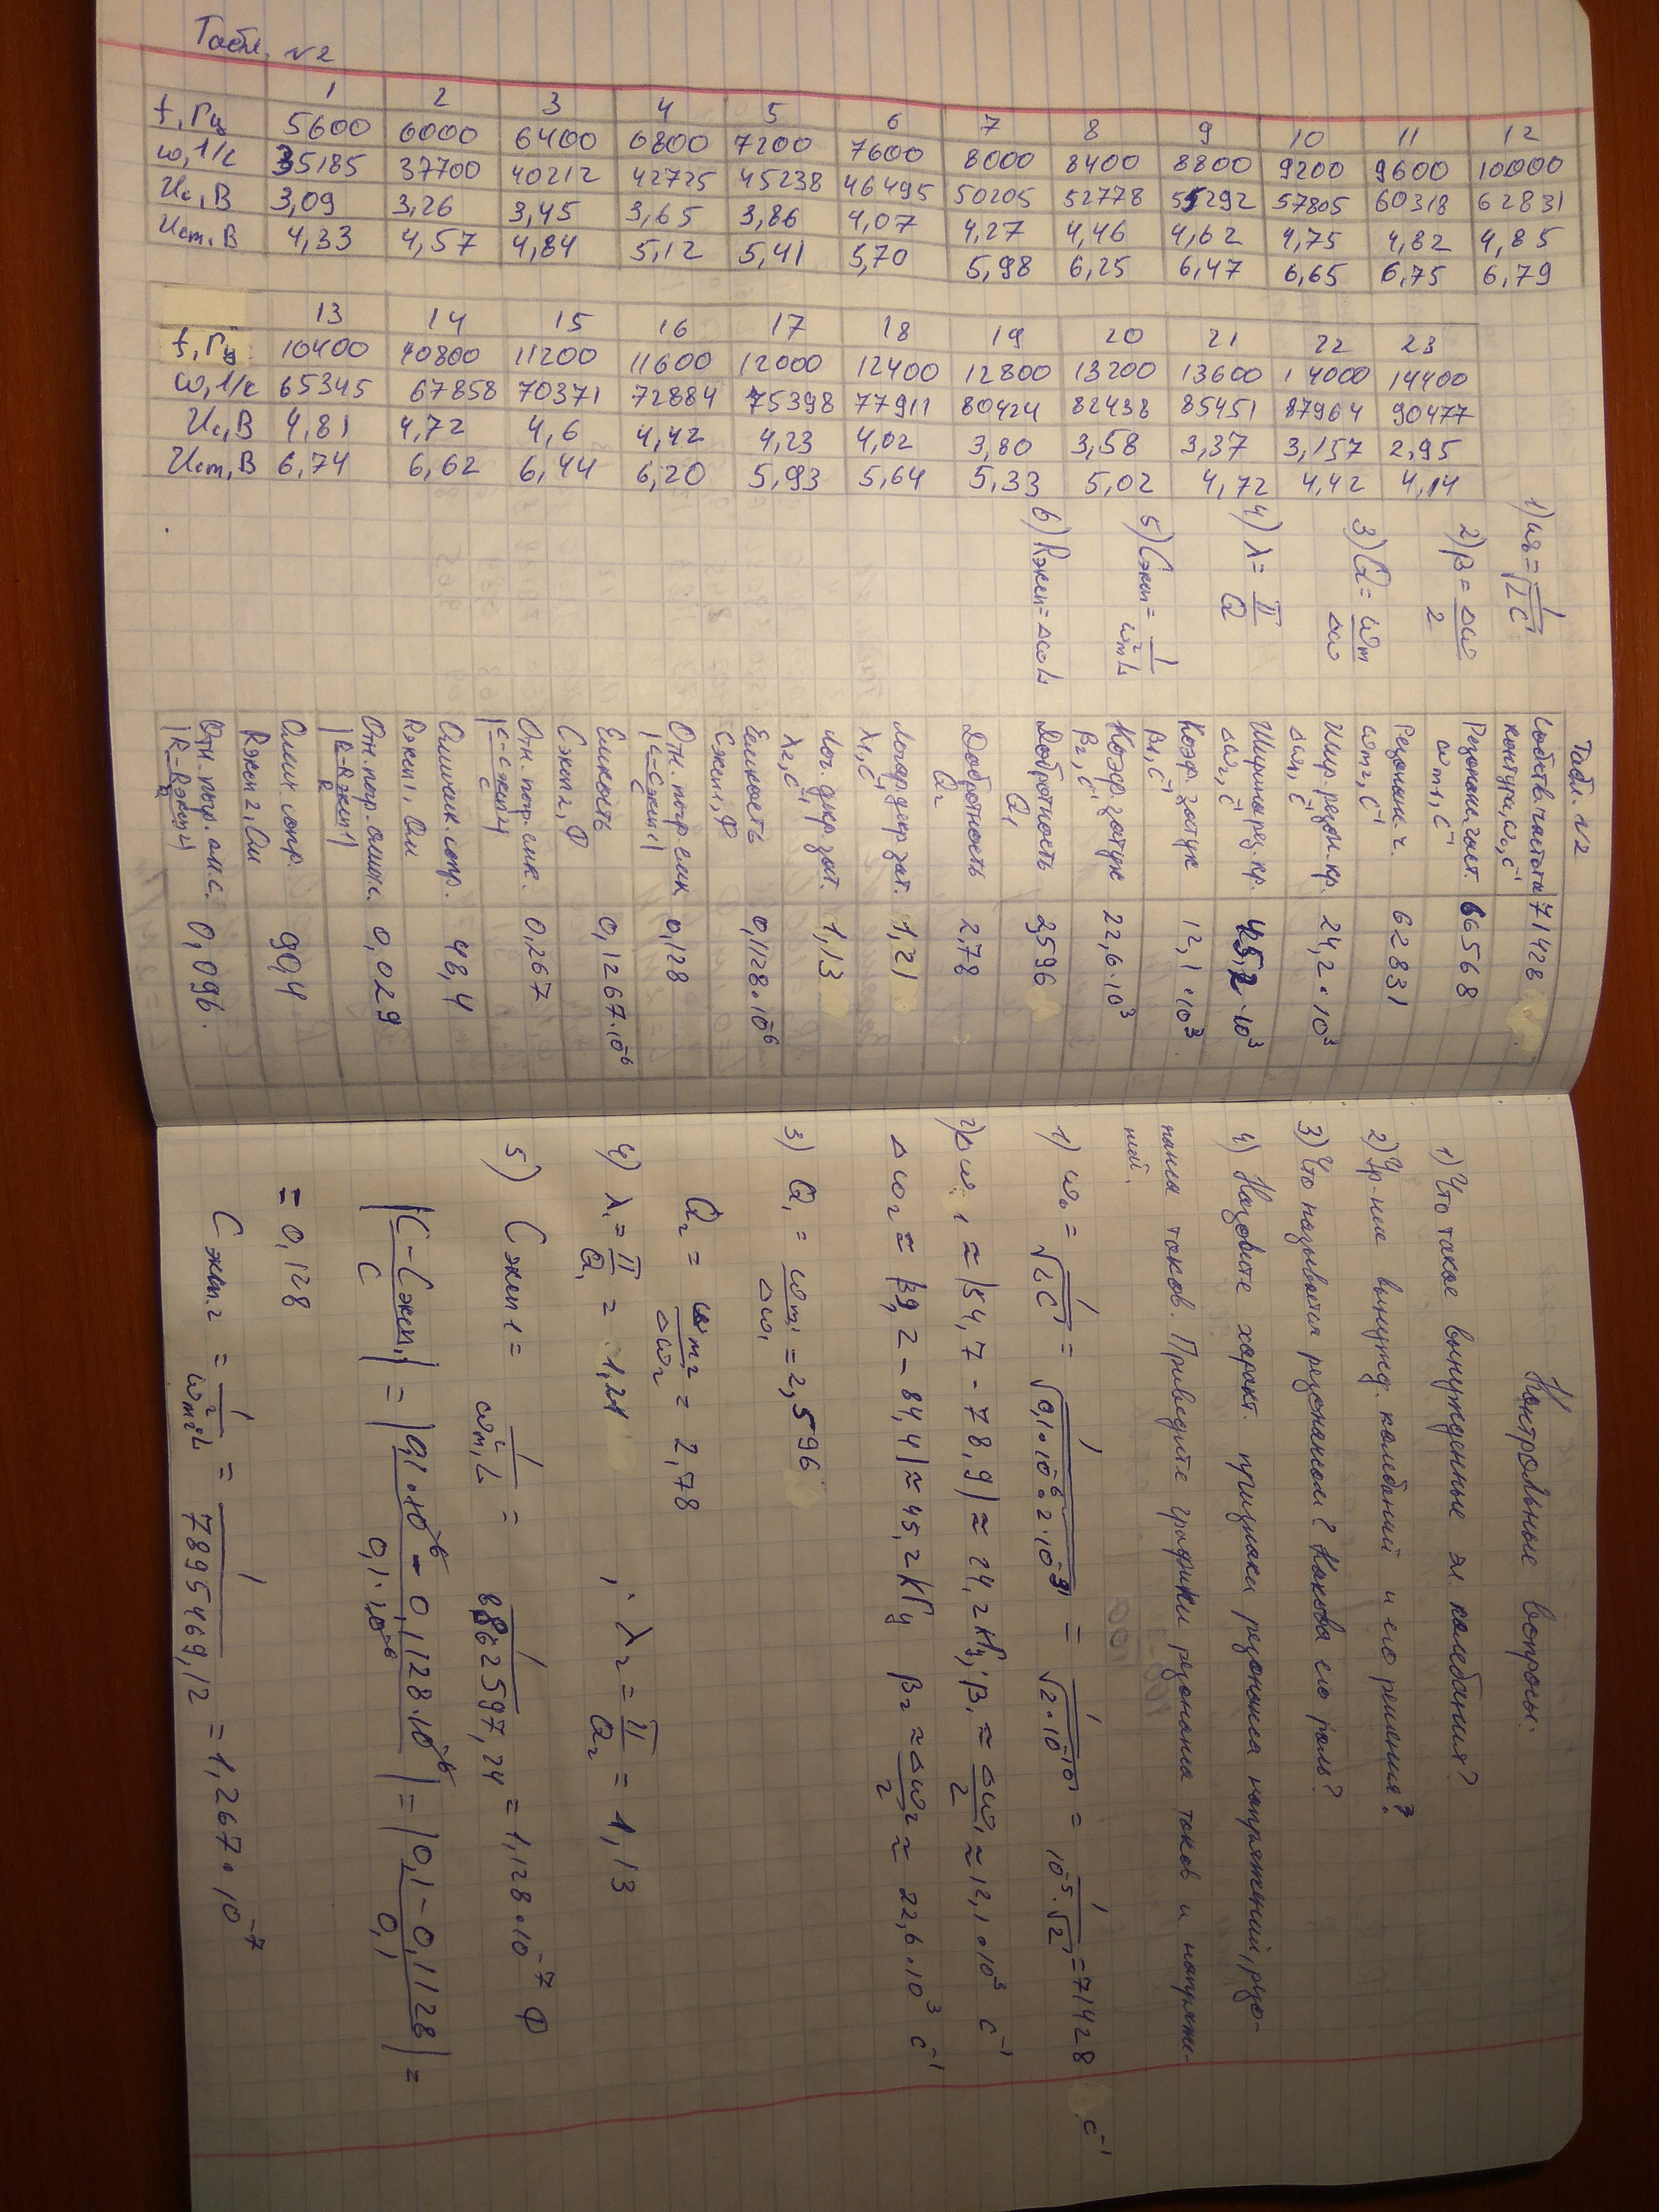 Табл. №2
1 2 3 4 5 6 7 8 9 10 11 12
f, Гц 5600 6000 6400 6800 7200 7600 8000 8400 8800 9200 9600 10000
ω, 1/с 35185 37700 40212 42725 45238 46495 50205 52778 55292 57805 60318 62831
Uc, В 3,09 3,26 3,45 3,65 3,86 4,07 4,27 4,46 4,62 4,75 4,82 4,85
Ucm, В 4,33 4,57 4,84 5,12 5,41 5,70 5,98 6,25 6,47 6,65 6,75 6,79
13 14 15 16 17 18 19 20 21 22 23
f, Гц 10400 40800 11200 11600 12000 12400 12800 13200 13600 14000 14400
ω, 1/с 65345 67858 70371 72884 75398 77911 80424 82438 85451 87964 90477
Uc, В 4,81 4,72 4,6 4,42 4,23 4,02 3,80 3,58 3,37 3,157 2,95
Ucm, В 6,74 6,62 6,44 6,20 5,93 5,64 5,33 5,02 4,72 4,42 4,14
1) ω₀ = 1/√LC
2) β = Δω/2
3) Q = ωm/Δω
4) λ = π/Q
5) Cэксп = 1/ωm²L
6) Rэксп = ΔωL
Табл. №2
Собств. частота 71428
контура, ω₀, с⁻¹
Резонанс. част. 66568
ωm1, с⁻¹
Резонанс. ч. 62831
ωm2, с⁻¹
Шир. резон. кр. 24,2·10³
Δω1, с⁻¹
Ширина рез. кр. 45,2·10³
Δω2, с⁻¹
Коэф. затух 12,1·10³
β1, с⁻¹
Коэф. затух 22,6·10³
β2, с⁻¹
Добротность 2,596
Q1
Добротность 2,78
Q2
Логар. декр. зат. 1,21
λ1, с⁻¹
Лог. декр. зат. 1,13
λ2, с⁻¹
Емкость 0,1128·10⁻⁶
Cэксп1, Ф
Отн. погр. емк. 0,128
|C-Cэксп1/C|
Емкость 0,1267·10⁻⁶
Cэксп2, Ф
Отн. погр. емк. 0,267
|C-Cэксп2/C|
Омическ. сопр. 48,4
Rэксп1, Ом
Отн. погр. омич. с. 0,029
|R-Rэксп1/R|
Омич. сопр. 90,4
Rэксп2, Ом
Отн. погр. ом. с. 0,096.
|R-Rэксп2/R|
Контрольные вопросы:
1) Что такое вынужденные эл. колебания?
2) Ур-ние вынужд. колебаний и его решения?
3) Что называется резонансом? Какова его роль?
4) Назовите характ. признаки резонанса напряжений, резо-
нанса токов. Приведите графики резонанса токов и напряже-
ний.
1) ω₀ = 1/√LC = 1/√0,1·10⁻⁶·2·10⁻³ = 1/√2·10⁻¹⁰ = 1/10⁻⁵·√2 = 71428 с⁻¹
2) Δω1 ≈ |54,7 - 78,9| ≈ 24,2 кГц; β1 ≈ Δω1/2 ≈ 12,1·10³ с⁻¹
Δω2 ≈ |39,2 - 84,4| ≈ 45,2 кГц β2 ≈ Δω2/2 ≈ 22,6·10³ с⁻¹
3) Q1 = ωm1/Δω1 = 2,596
Q2 = ωm2/Δω2 = 2,78
4) λ1 = π/Q1 = 1,21 ; λ2 = π/Q2 = 1,13
5) Cэксп1 = 1/ωm1²L = 1/8862597,24 = 1,128·10⁻⁷ Ф
|C-Cэксп1/C| = |0,1·10⁻⁶ - 0,1128·10⁻⁶/0,1·10⁻⁶| = |0,1 - 0,1128/0,1| =
= 0,128
Cэксп.2 = 1/ωm2²L = 1/7895469,12 = 1,267·10⁻⁷